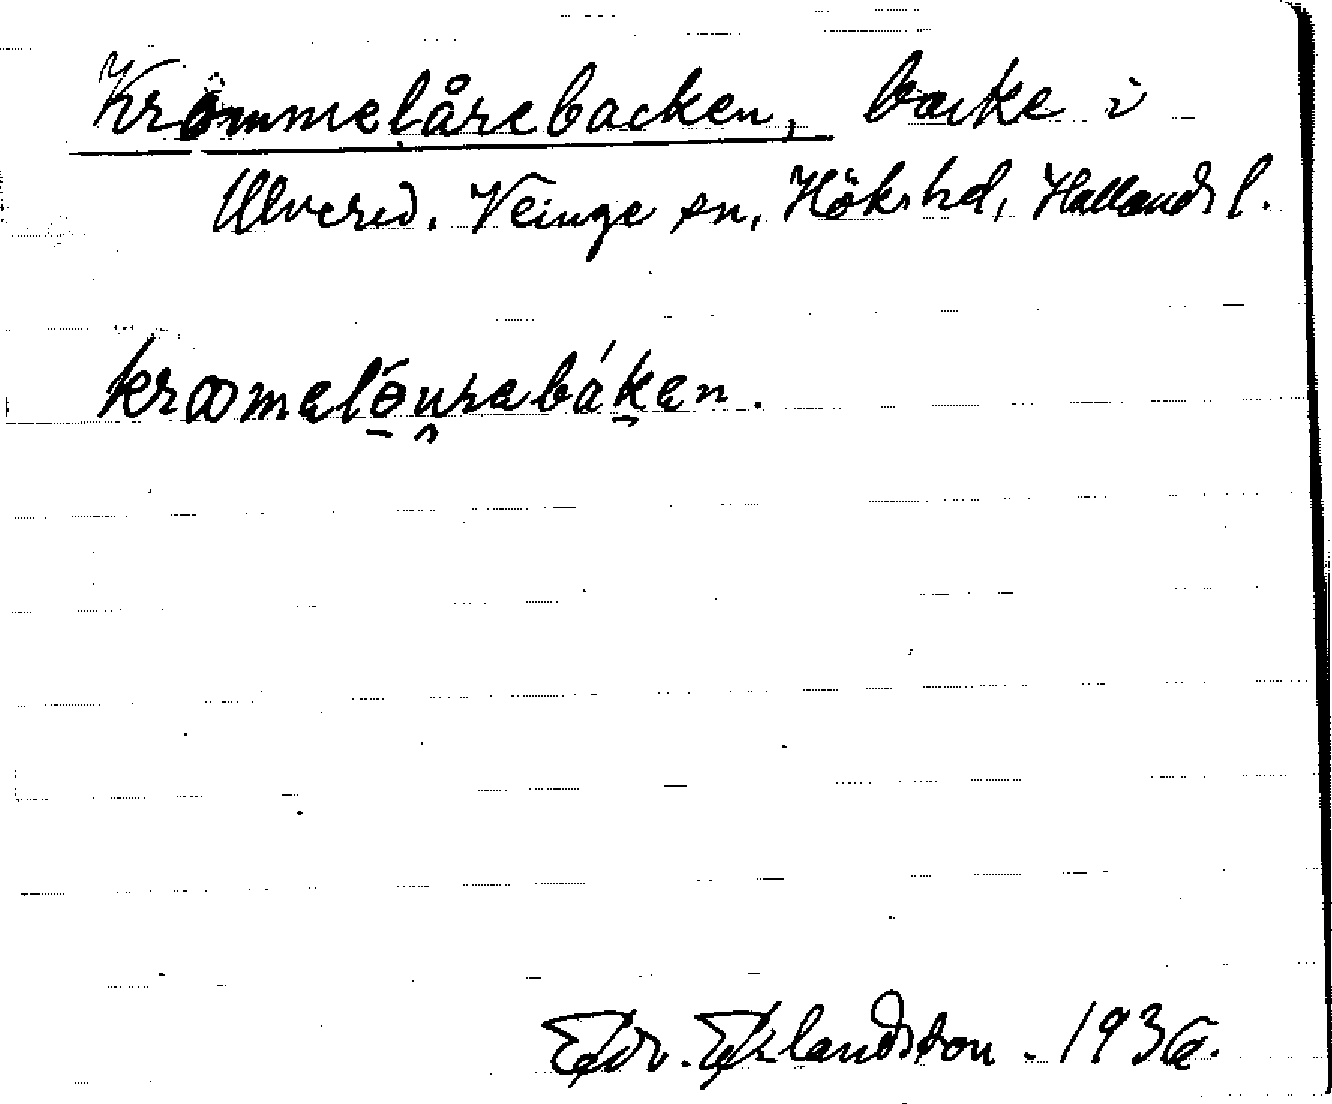 Krommelårebacken, backe i
Ulvered. Veinge sn, Höks hd, Hallands l.
kroməlōu̯rəbák̯ən.
Edv. Eklandston. 1936.